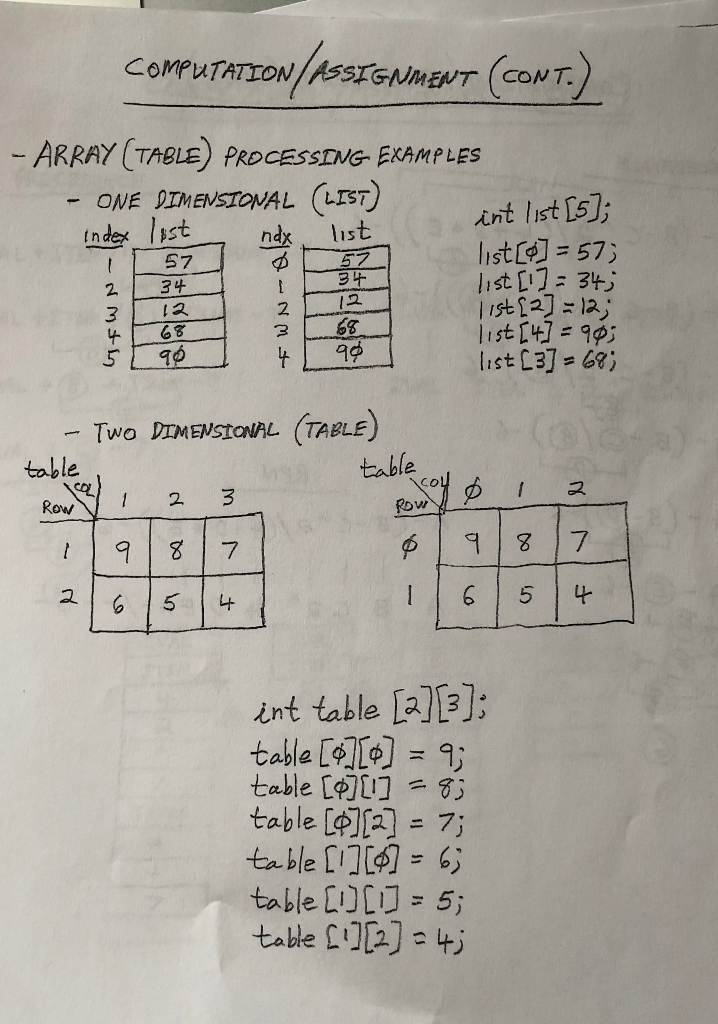 COMPUTATION/ASSIGNMENT (CONT.)
- ARRAY (TABLE) PROCESSING EXAMPLES
- ONE DIMENSIONAL (LIST)
index list
1 57
2 34
3 12
4 68
5 9φ
ndx list
φ 57
1 34
2 12
3 68
4 9φ
int list [5];
list[φ] = 57;
list[1] = 34;
list[2] = 12;
list[4] = 9φ;
list[3] = 68;
- TWO DIMENSIONAL (TABLE)
table
COL 1 2 3
ROW
1 9 8 7
2 6 5 4
table
COL φ 1 2
ROW
φ 9 8 7
1 6 5 4
int table [2][3];
table [φ][φ] = 9;
table [φ][1] = 8;
table [φ][2] = 7;
table [1][φ] = 6;
table [1][1] = 5;
table [1][2] = 4;